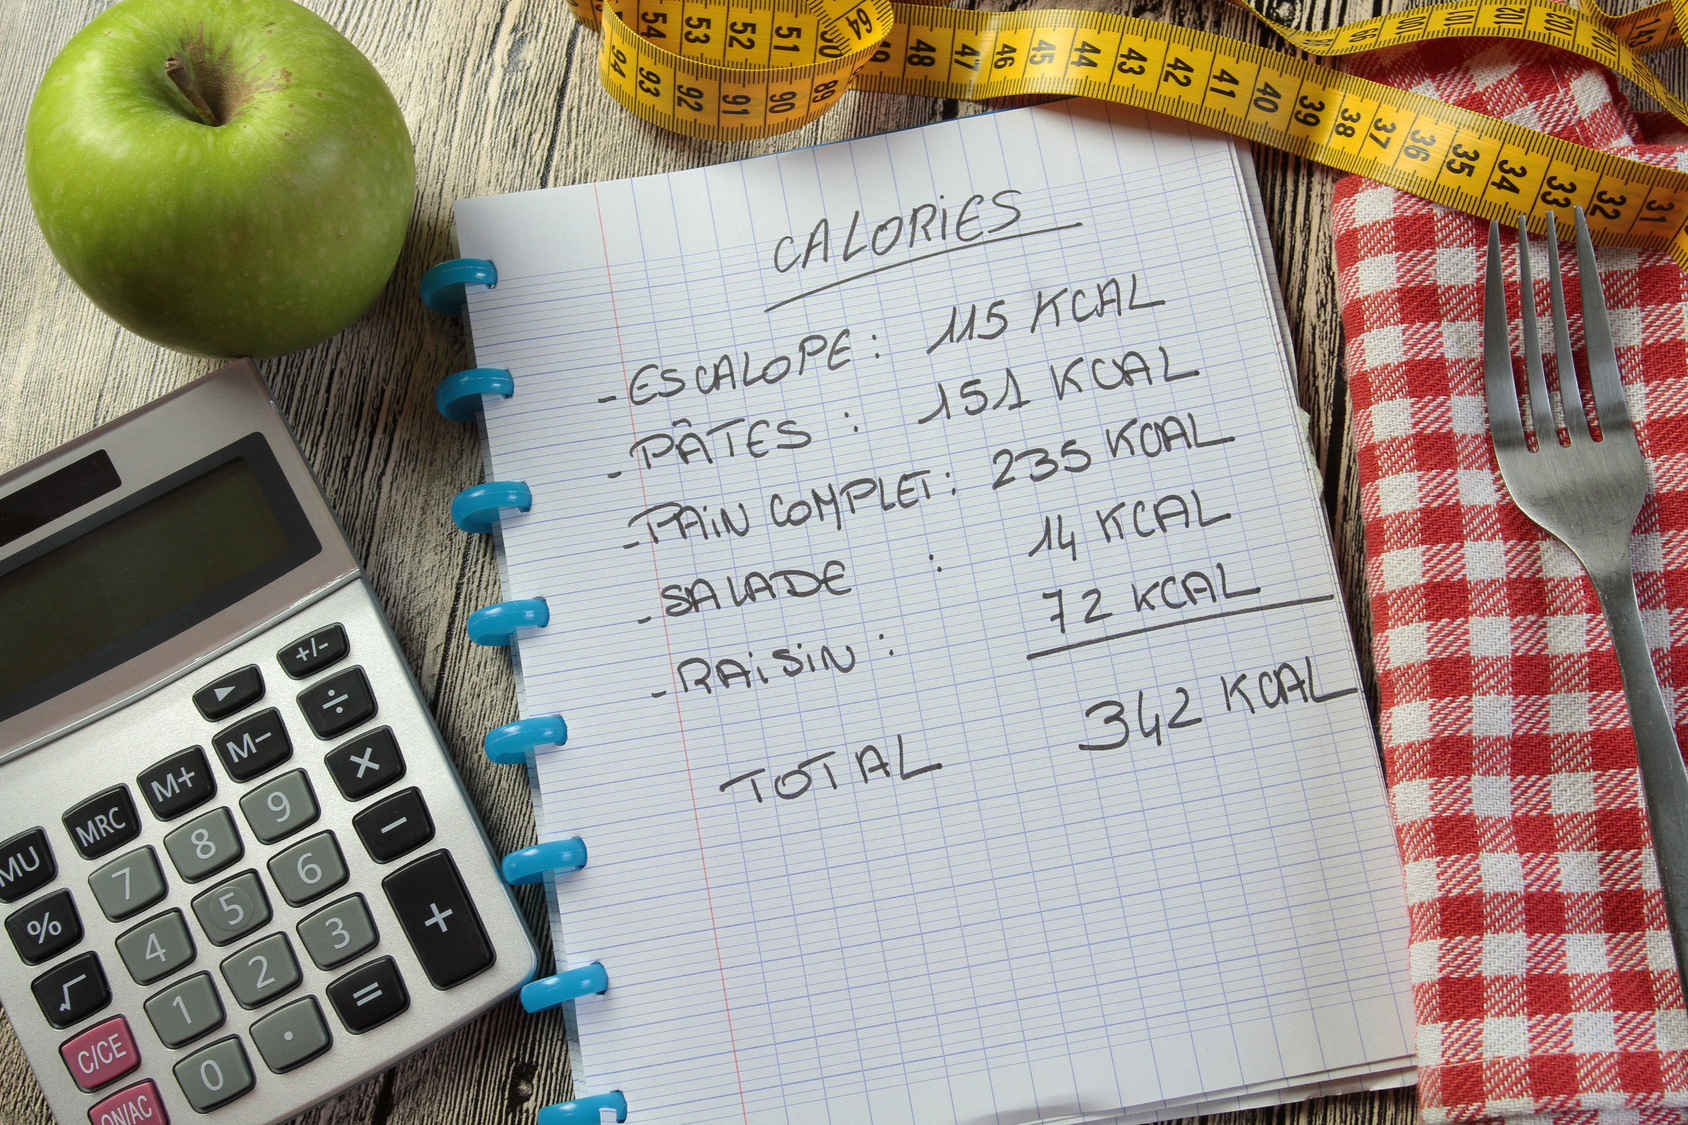 54 53 52 51 50 64 49 48 47 46 45 44 43 42 41 40 39 38 37 36 35 34 33 32 31
94 93 92 91 90 89
CALORIES
- ESCALOPE : 115 KCAL
- PÂTES : 151 KCAL
- PAIN COMPLET : 235 KCAL
- SALADE : 14 KCAL
- RAISIN : 72 KCAL
TOTAL 342 KCAL
+/-
▶ ÷
M- ×
MRC M+ 9 -
MU 8 6 +
7 5 3
% 4 2 =
√ 1 .
C/CE 0
ON/AC